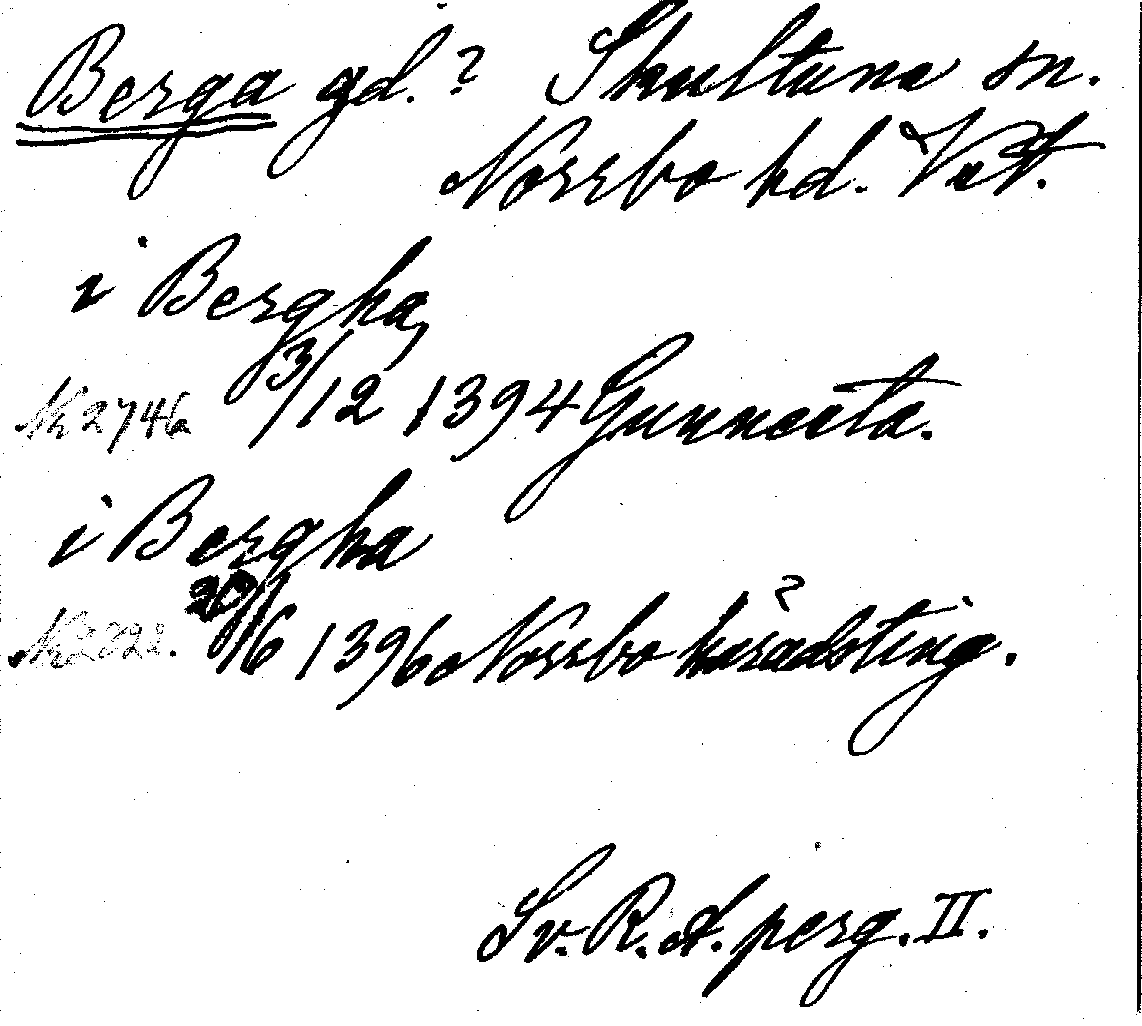 Berga gd. ? Skultuna sn.
Norrbo hd. Vstt.
i Bergha,
Nr 2746 3/12 1394 Gunnesta.
i Bergha
Nr 2922. 20/6 1396 Norrbo häradsting. ?
Sv. R. A. perg. II.